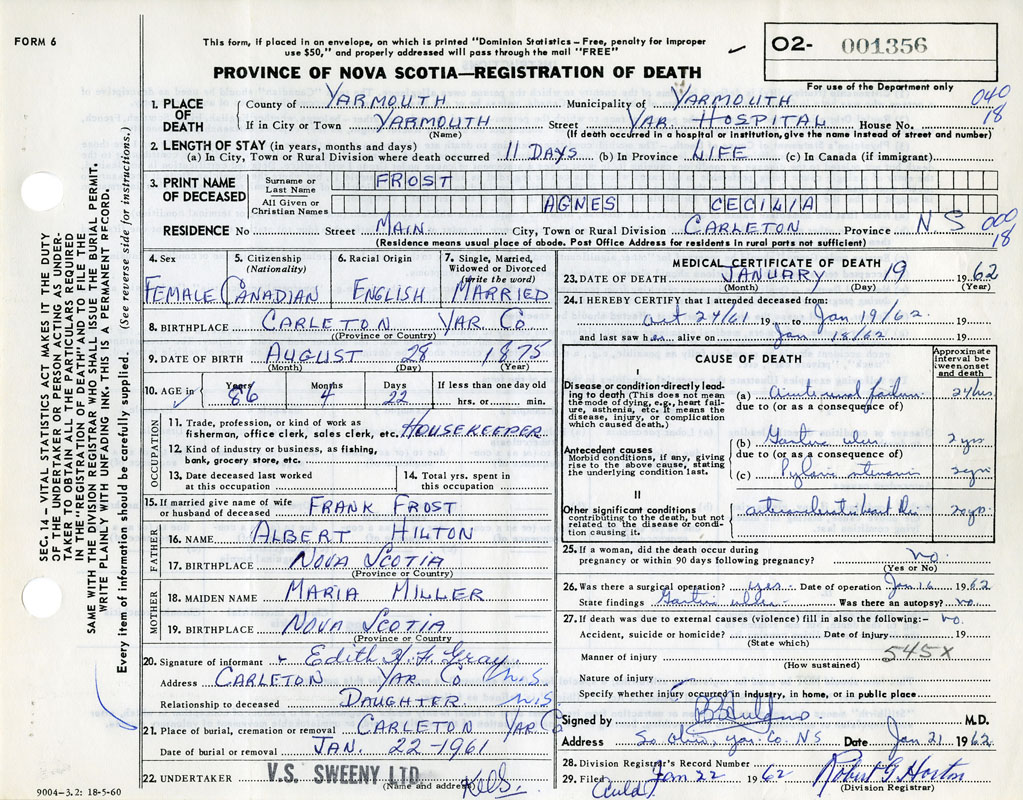 FORM 6
This form, if placed in an envelope, on which is printed "Dominion Statistics—Free, penalty for improper
use $50," and properly addressed will pass through the mail "FREE"
PROVINCE OF NOVA SCOTIA—REGISTRATION OF DEATH
O2- 001356
For use of the Department only
040
18
1. PLACE OF DEATH
County of YARMOUTH Municipality of YARMOUTH
If in City or Town YARMOUTH Street YAR. HOSPITAL House No.
(Name) (If death occurred in a hospital or institution, give the name instead of street and number)
2. LENGTH OF STAY (in years, months and days)
(a) In City, Town or Rural Division where death occurred 11 DAYS (b) In Province LIFE (c) In Canada (if immigrant)
3. PRINT NAME OF DECEASED
Surname or Last Name FROST
All Given or Christian Names AGNES CECILIA
RESIDENCE No Street MAIN. City, Town or Rural Division CARLETON Province N S 000
18
(Residence means usual place of abode. Post Office Address for residents in rural parts not sufficient)
4. Sex FEMALE
5. Citizenship (Nationality) CANADIAN
6. Racial Origin ENGLISH
7. Single, Married, Widowed or Divorced (write the word) MARRIED
8. BIRTHPLACE CARLETON YAR CO
(Province or Country)
9. DATE OF BIRTH AUGUST 28 1875
(Month) (Day) (Year)
10. AGE in Years 86 Months 4 Days 22 If less than one day old
hrs. or min.
OCCUPATION
11. Trade, profession, or kind of work as
fisherman, office clerk, sales clerk, etc. HOUSEKEEPER
12. Kind of industry or business, as fishing,
bank, grocery store, etc.
13. Date deceased last worked
at this occupation
14. Total yrs. spent in
this occupation
15. If married give name of wife
or husband of deceased FRANK FROST
FATHER
16. NAME ALBERT HILTON
17. BIRTHPLACE NOVA SCOTIA
(Province or Country)
MOTHER
18. MAIDEN NAME MARIA MILLER
19. BIRTHPLACE NOVA SCOTIA
(Province or Country
20. Signature of informant Edith H. F. Gray
Address CARLETON YAR CO N.S
Relationship to deceased DAUGHTER N.S
21. Place of burial, cremation or removal CARLETON YAR CO
Date of burial or removal JAN. 22 -1961
22. UNDERTAKER V.S. SWEENY LTD.
(Name and address)
9004-3.2: 18-5-60
MEDICAL CERTIFICATE OF DEATH
23. DATE OF DEATH JANUARY 19 1962
(Month) (Day) (Year)
24. I HEREBY CERTIFY that I attended deceased from:
Oct 24/61 19 to Jan 19/62. 19
and last saw her alive on Jan 18/62 19
CAUSE OF DEATH
Approximate interval between onset and death
I
Disease or condition directly leading to death (This does not mean the mode of dying, e.g., heart failure, asthenia, etc. It means the disease, injury, or complication which caused death.)
(a) Acute renal failure 24 hrs
due to (or as a consequence of)
Antecedent causes
Morbid conditions, if any, giving rise to the above cause, stating the underlying condition last.
(b) Gastric ulcer 2 yrs
due to (or as a consequence of)
(c) Pyloric stenosis 2 yrs
II
Other significant conditions
contributing to the death, but not related to the disease or condition causing it.
arteriosclerotic heart Dis
25. If a woman, did the death occur during
pregnancy or within 90 days following pregnancy? no.
(Yes or No)
26. Was there a surgical operation? yes Date of operation Jan 16 1962
State findings Gastric ulcer Was there an autopsy? no
27. If death was due to external causes (violence) fill in also the following:- no.
Accident, suicide or homicide? Date of injury 19
(State which)
Manner of injury 545X
(How sustained)
Nature of injury
Specify whether injury occurred in industry, in home, or in public place
Signed by M.D.
Address So Ohio, Yar. Co. NS Date Jan 21 1962
28. Division Registrar's Record Number
29. Filed Jan 22 1962 Robert G Horton
(Division Registrar)
SEC. 14 – VITAL STATISTICS ACT MAKES IT THE DUTY
OF THE UNDERTAKER OR PERSON ACTING AS UNDER-
TAKER TO OBTAIN ALL THE PARTICULARS REQUIRED
IN THE "REGISTRATION OF DEATH" AND TO FILE THE
SAME WITH THE DIVISION REGISTRAR WHO SHALL ISSUE THE BURIAL PERMIT.
WRITE PLAINLY WITH UNFADING INK. THIS IS A PERMANENT RECORD.
Every item of information should be carefully supplied. (See reverse side for instructions.)